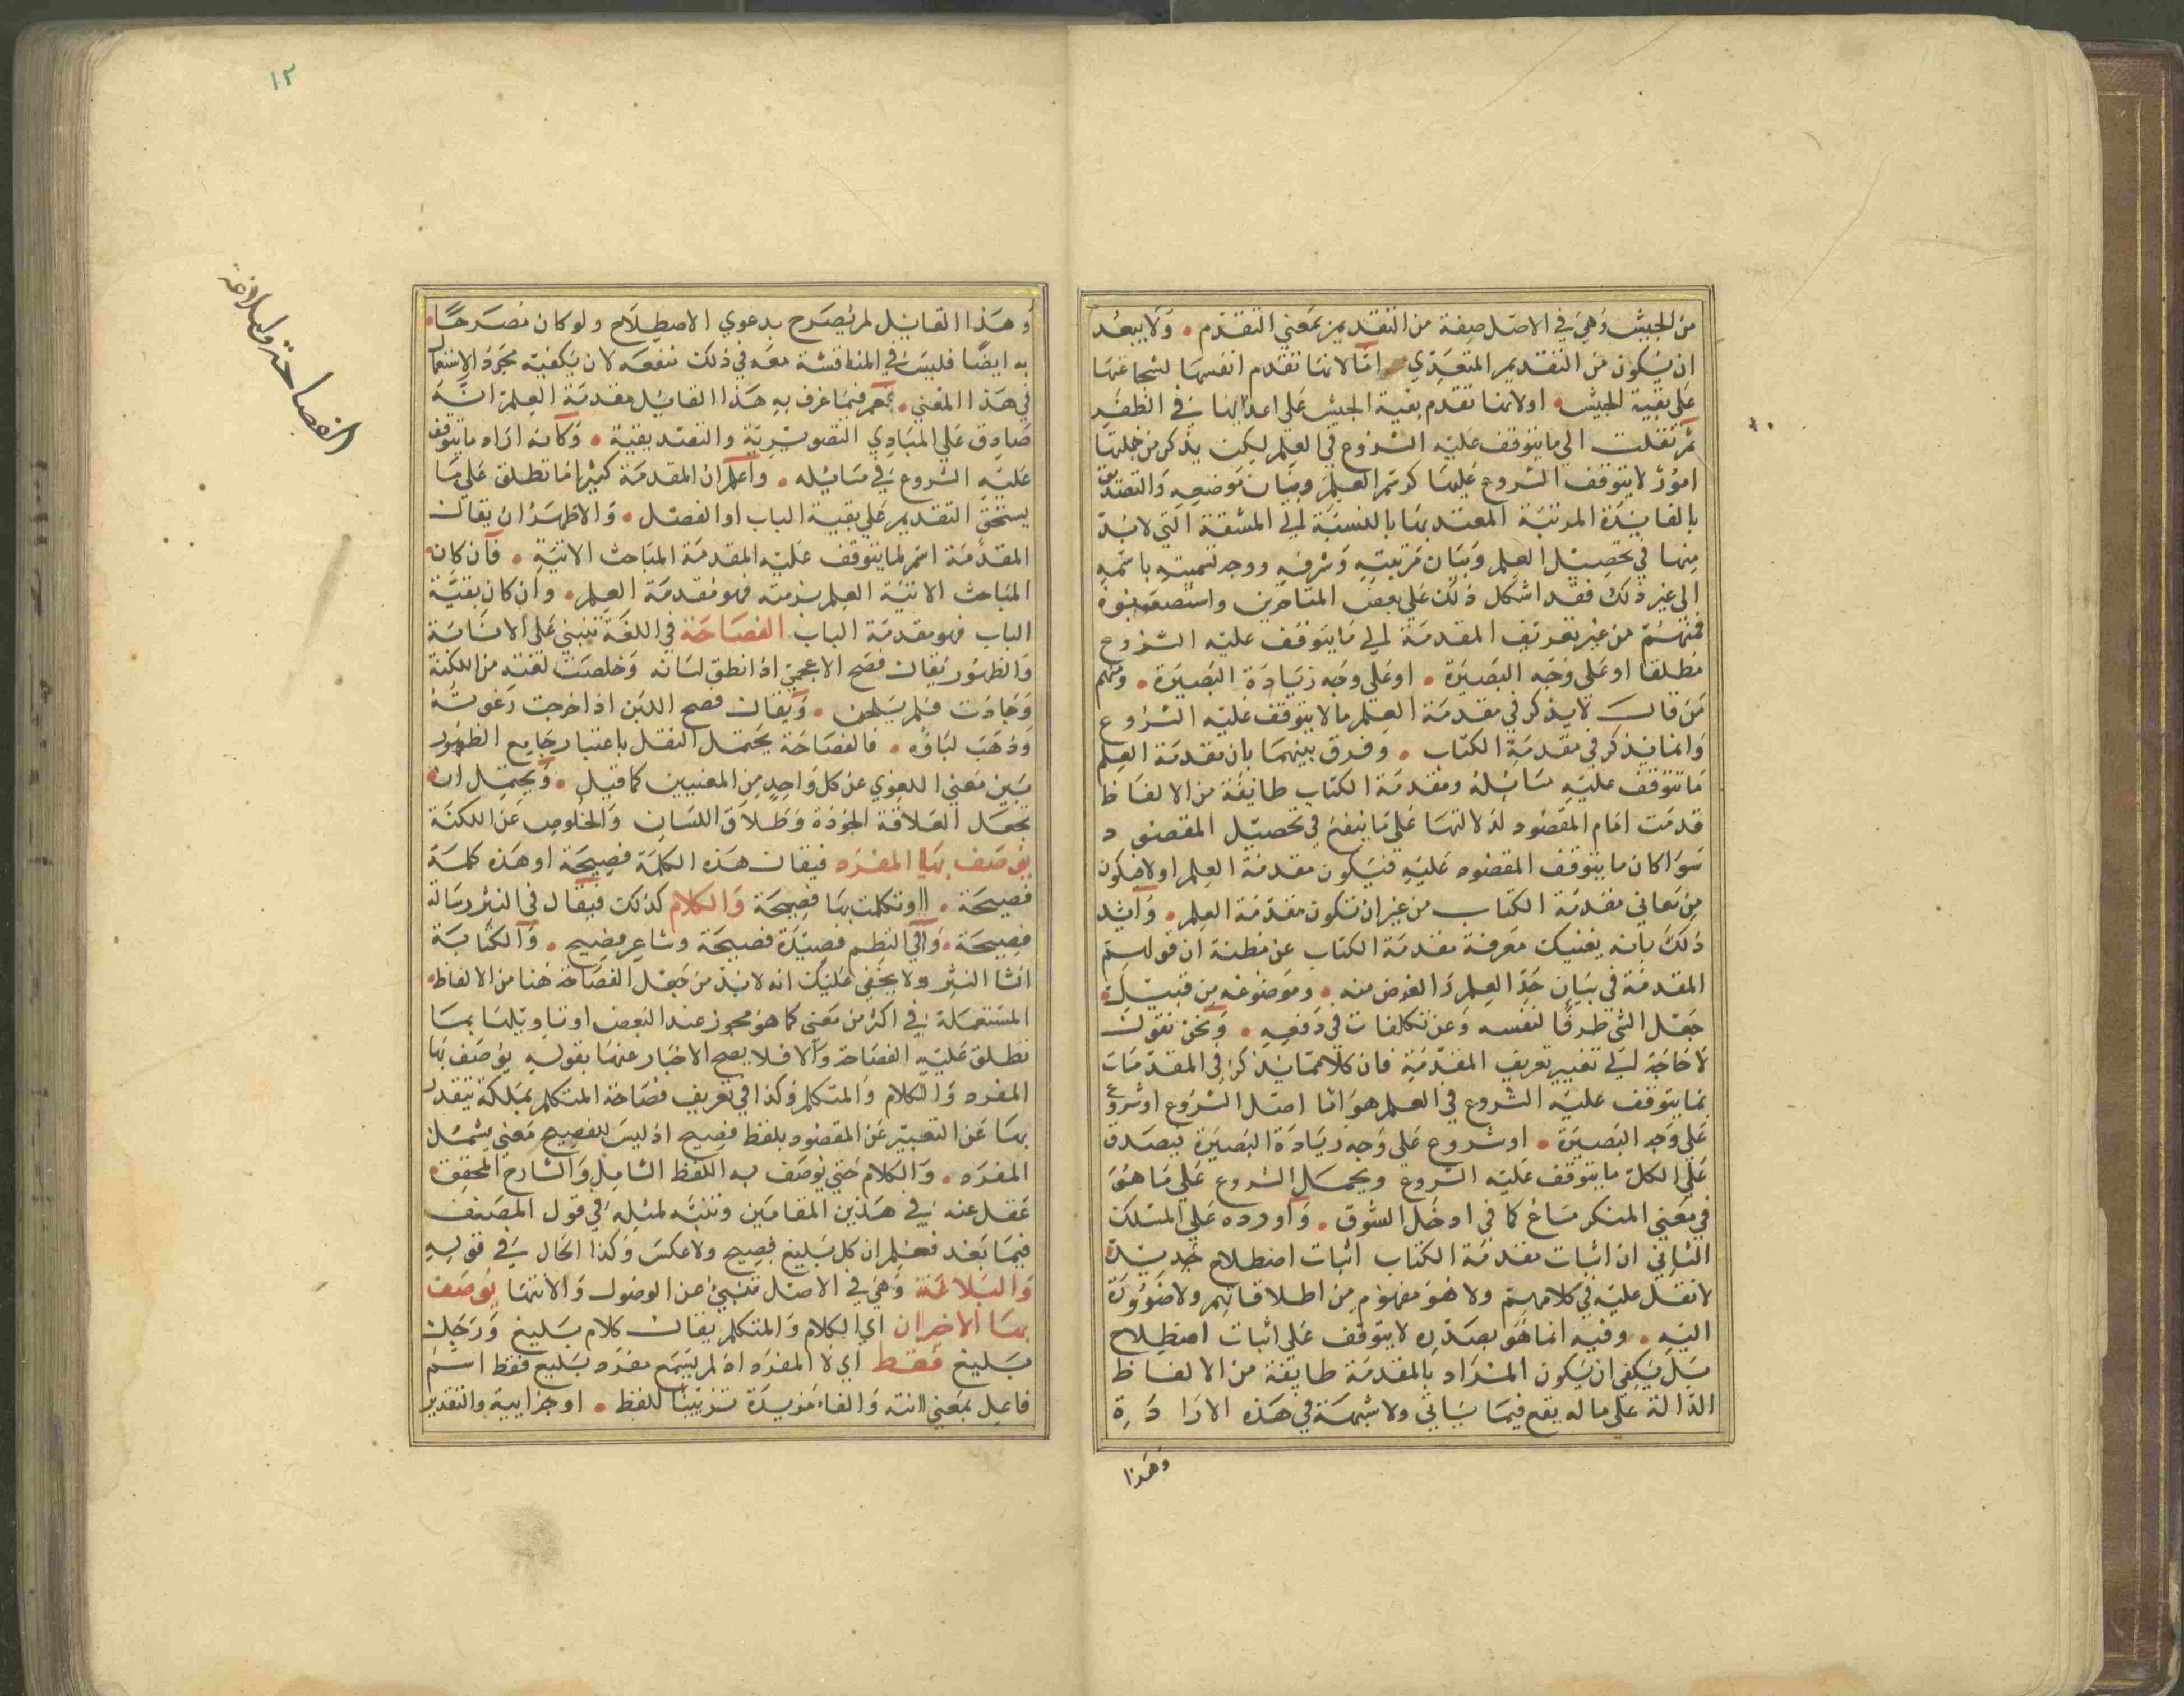 من الجيش وهي في الاصل صفة من التقديم بمعني التقدم ولا يبعد
ان يكون من التقديم المتعدي اما لانها تقدم انفسها لشجاعتها
علي بقية الجيش او لانها تقدم بقية الجيش علي اعدائها في الظفر
ثم نقلت الي ما يتوقف عليه الشروع في العلم لكن يذكر من جملتها
امور لا يتوقف الشروع عليها كرسم العلم وبيان موضوعه والتصديق
بالفايدة المرتبة المعتد بها بالنسبة الي المشقة التي لابد
منها في تحصيل العلم وبيان مرتبته وشرفه ووجه تسميته باسمه
الي غير ذلك فقد اشكل ذلك علي بعض المتاخرين واستصعبوه
فمنهم من غير تعريف المقدمة الي ما يتوقف عليه الشروع
مطلقا او علي وجه البصيرة او علي وجه زيادة البصيرة ومنهم
من قال لا يذكر في مقدمة العلم ما لا يتوقف عليه الشروع
وانما يذكر في مقدمة الكتاب وفرق بينهما بان مقدمة العلم
ما تتوقف عليه مسائله ومقدمة الكتاب طايفة من الالفاظ
قدمت امام المقصود لدلالتها علي ما ينفع في تحصيل المقصود
سوا كان ما يتوقف المقصود عليه فيكون مقدمة العلم او لا فيكون
من معاني مقدمة الكتاب من غير ان تكون مقدمة العلم وايد
ذلك بانه يغنيك معرفة مقدمة الكتاب عن مظنة ان قولهم
المقدمة في بيان حد العلم والغرض منه وموضوعه من قبيل
جعل الشي ظرفا لنفسه وعن تكلفات في دفعه ونحن نقول
لا حاجة الي تغيير تعريف المقدمة فان كلا مما يذكر في المقدمات
مما يتوقف عليه الشروع في العلم هو اما اصل الشروع او شروع
علي وجه البصيرة او شروع علي وجه زيادة البصيرة فيصدق
علي الكل ما يتوقف عليه الشروع ويحمل الشروع علي ما هو
في معني المنكر مساغ كما في ادخل السوق واورده علي المسلك
الثاني ان اثبات مقدمة الكتاب اثبات اصطلاح جديد
لا نقل عليه في كلامهم ولا هو مفهوم من اطلاقاتهم ولا ضرورة
اليه وفيه انما هو بصدده لا يتوقف علي اثبات اصطلاح
بل يكفي ان يكون المراد بالمقدمة طايفة من الالفاظ
الدالة علي ما له يقع فيما ياتي ولا شبهة في هذه الارادة
وهذا
١٢
وهذا القايل لم يصرح بدعوي الاصطلاح ولو كان مصرحا
به ايضا فليس في المناقشة معه في ذلك منفعة لان يكفيه مجرد الاستعمال
في هذا المعني نعم فيما عرف به هذا القايل مقدمة العلم انه
صادق علي المبادي التصويرية والتصديقية وكانه اراد ما يتوقف
عليه الشروع في مسايله واعلم ان المقدمة كثيرا ما تطلق علي ما
يستحق التقديم علي بقية الباب او الفصل والاظهر ان يقال
المقدمة اسم لما يتوقف عليه المقدمة المباحث الاتية فان كان
المباحث الاتية العلم برمته فهو مقدمة العلم وان كان بقية
الباب فهو مقدمة الباب الفصاحة في اللغة تنبي علي الابانة
والظهور يقال فصح الاعجمي اذا انطق لسانه وخلصت لغته من اللكنة
وجادت فلم يلحن ويقال فصح اللبن اذا اخرجت رغوته
وذهب لباؤه فالفصاحة يحتمل النقل باعتبار جامع الظهور
بين معني اللغوي عن كل واحد من المعنيين كما قيل ويحتمل ان
تجعل العلاقة الجودة وطلاق اللسان والخلوص عن اللكنة
يوصف بها المفرد فيقال هذه الكلمة فصيحة او هذه كلمة
فصيحة او تكلمت بها فصيحة والكلام كذلك فيقال في النثر رسالة
فصيحة وفي النظم قصيدة فصيحة وشاعر فصيح والكتابة
انشا النثر ولا يخفي عليك انه لا بد من جعل الفصاحة هنا من الالفاظ
المستعملة في اكثر من معني كما هو مجوز عند البعض او تاويلها بما
تطلق عليه الفصاحة والا فلا يصح الاخبار عنها بقوله يوصف بها
المفرد والكلام والمتكلم وكذا في تعريف فصاحة المتكلم بملكة يقتدر
بها عن التعبير عن المقصود بلفظ فصيح اذ ليس للفصيح معني يشمل
المفرد والكلام حتي يوصف به اللفظ الشامل والشارح المحقق
غفل عنه في هذين المقامين وتنبه لمثله في قول المصنف
فيما بعد فعلم ان كل بليغ فصيح ولا عكس وكذا الحال في قوله
والبلاغة وهي في الاصل تنبئ عن الوصول والانتها يوصف
بها الاخيران اي الكلام والمتكلم يقال كلام بليغ ورجل
بليغ فقط اي لا المفرد اذ لم يسمع مفرد بليغ فقط اسم
فاعل بمعني انته والفاء مزيدة تزيينا للفظ او جزايية والتقدير
الفصاحة والبلاغة